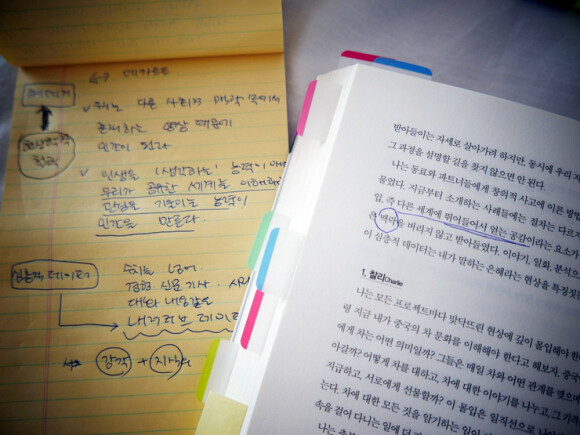 ↔ 데카르트
하이데거
우리는 다른 사회적 맥락 속에서
존재하는 세상 때문에
인간이 된다
현상학적
철학
인생은 '생각하는' 능력이 아니
우리가 공유한 세계를 이해하
관심을 기울이는 능력이
인간을 만든다.
심층적 데이터
수치를 넘어
경험 신문기사. 사
대화 내용같은
내러티브 데이터
감각 + 지식
받아들이는 자세로 살아가려 하지만, 동시에 우리 자
그 과정을 설명할 길을 찾지 않으면 안 된다.
나는 동료와 파트너들에게 창의적 사고에 이른 방법
물었다. 지금부터 소개하는 사례들에는 절차는 다르지
임, 즉 다른 세계에 뛰어들어서 얻는 공감이라는 요소가
은 맥락을 버리지 않고 받아들였다. 이야기, 일화, 분석으
이 심층적 데이터는 내가 말하는 은혜라는 현상을 특징짓
1. 찰리Charlie
나는 모든 프로젝트마다 맞닥뜨린 현상에 깊이 몰입해야 한
령 지금 내가 중국의 차 문화를 이해해야 한다고 해보자. 중국
에게 차는 어떤 의미일까? 그들은 매일 차와 어떤 관계를 맺으며
아갈까? 어떻게 차를 대하고, 차에 대한 이야기를 나누고, 그 가
지급하고, 서로에게 선물할까? 이 몰입은 일직선으로 나아
는다. 차에 대한 모든 것을 암기하는 일이
속을 걸어 다니는 일에 더